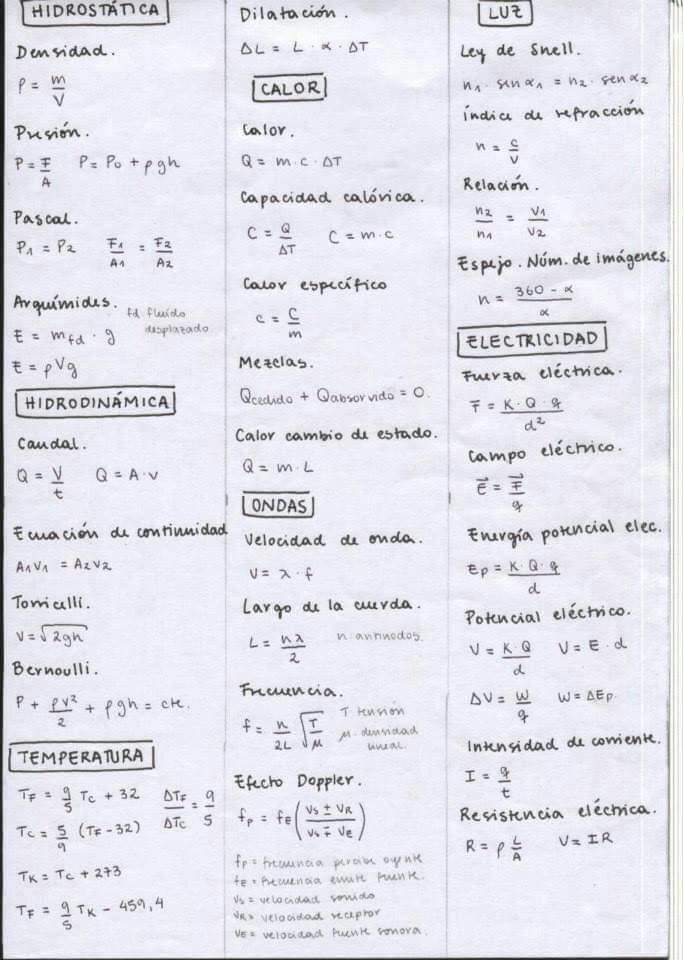 HIDROSTÁTICA
Densidad.
ρ = m/V
Presión.
P = F/A P = P₀ + ρgh
Pascal.
P₁ = P₂ F₁/A₁ = F₂/A₂
Arquímides. fd. fluido
E = m_fd · g desplazado
E = ρVg
HIDRODINÁMICA
Caudal.
Q = V/t Q = A·v
Ecuación de continuidad
A₁V₁ = A₂V₂
Torricelli.
V = √2gh
Bernoulli.
P + ρv²/2 + ρgh = cte.
TEMPERATURA
T_F = 9/5 T_C + 32 ΔT_F/ΔT_C = 9/5
T_C = 5/9 (T_F - 32)
T_K = T_C + 273
T_F = 9/5 T_K - 459,4
Dilatación.
ΔL = L · α · ΔT
CALOR
Calor.
Q = m · c · ΔT
Capacidad calórica.
C = Q/ΔT C = m·c
Calor específico
c = C/m
Mezclas.
Qcedido + Qabsorvido = 0.
Calor cambio de estado.
Q = m·L
ONDAS
Velocidad de onda.
V = λ · f
Largo de la cuerda.
L = nλ/2 n antinodos.
Frecuencia. T tensión
f = n/2L √T/μ μ densidad
lineal.
Efecto Doppler.
f_P = f_E (V_S ± V_R / V_S ∓ V_E)
f_P = frecuencia percibe oyente
f_E = frecuencia emite fuente.
V_S = velocidad sonido
V_R = velocidad receptor
V_E = velocidad fuente sonora.
LUZ
Ley de Snell.
n₁ · sen α₁ = n₂ · sen α₂
índice de refracción
n = c/v
Relación.
n₂/n₁ = V₁/V₂
Espejo. Núm. de imágenes.
n = 360 - α / α
ELECTRICIDAD
Fuerza eléctrica.
F = K·Q·q/d²
Campo eléctrico.
E⃗ = F⃗/q
Energía potencial elec.
Ep = K·Q·q/d
Potencial eléctrico.
V = K·Q/d V = E·d
ΔV = W/q W = ΔEp.
Intensidad de corriente.
I = q/t
Resistencia eléctrica.
R = ρ L/A V = IR